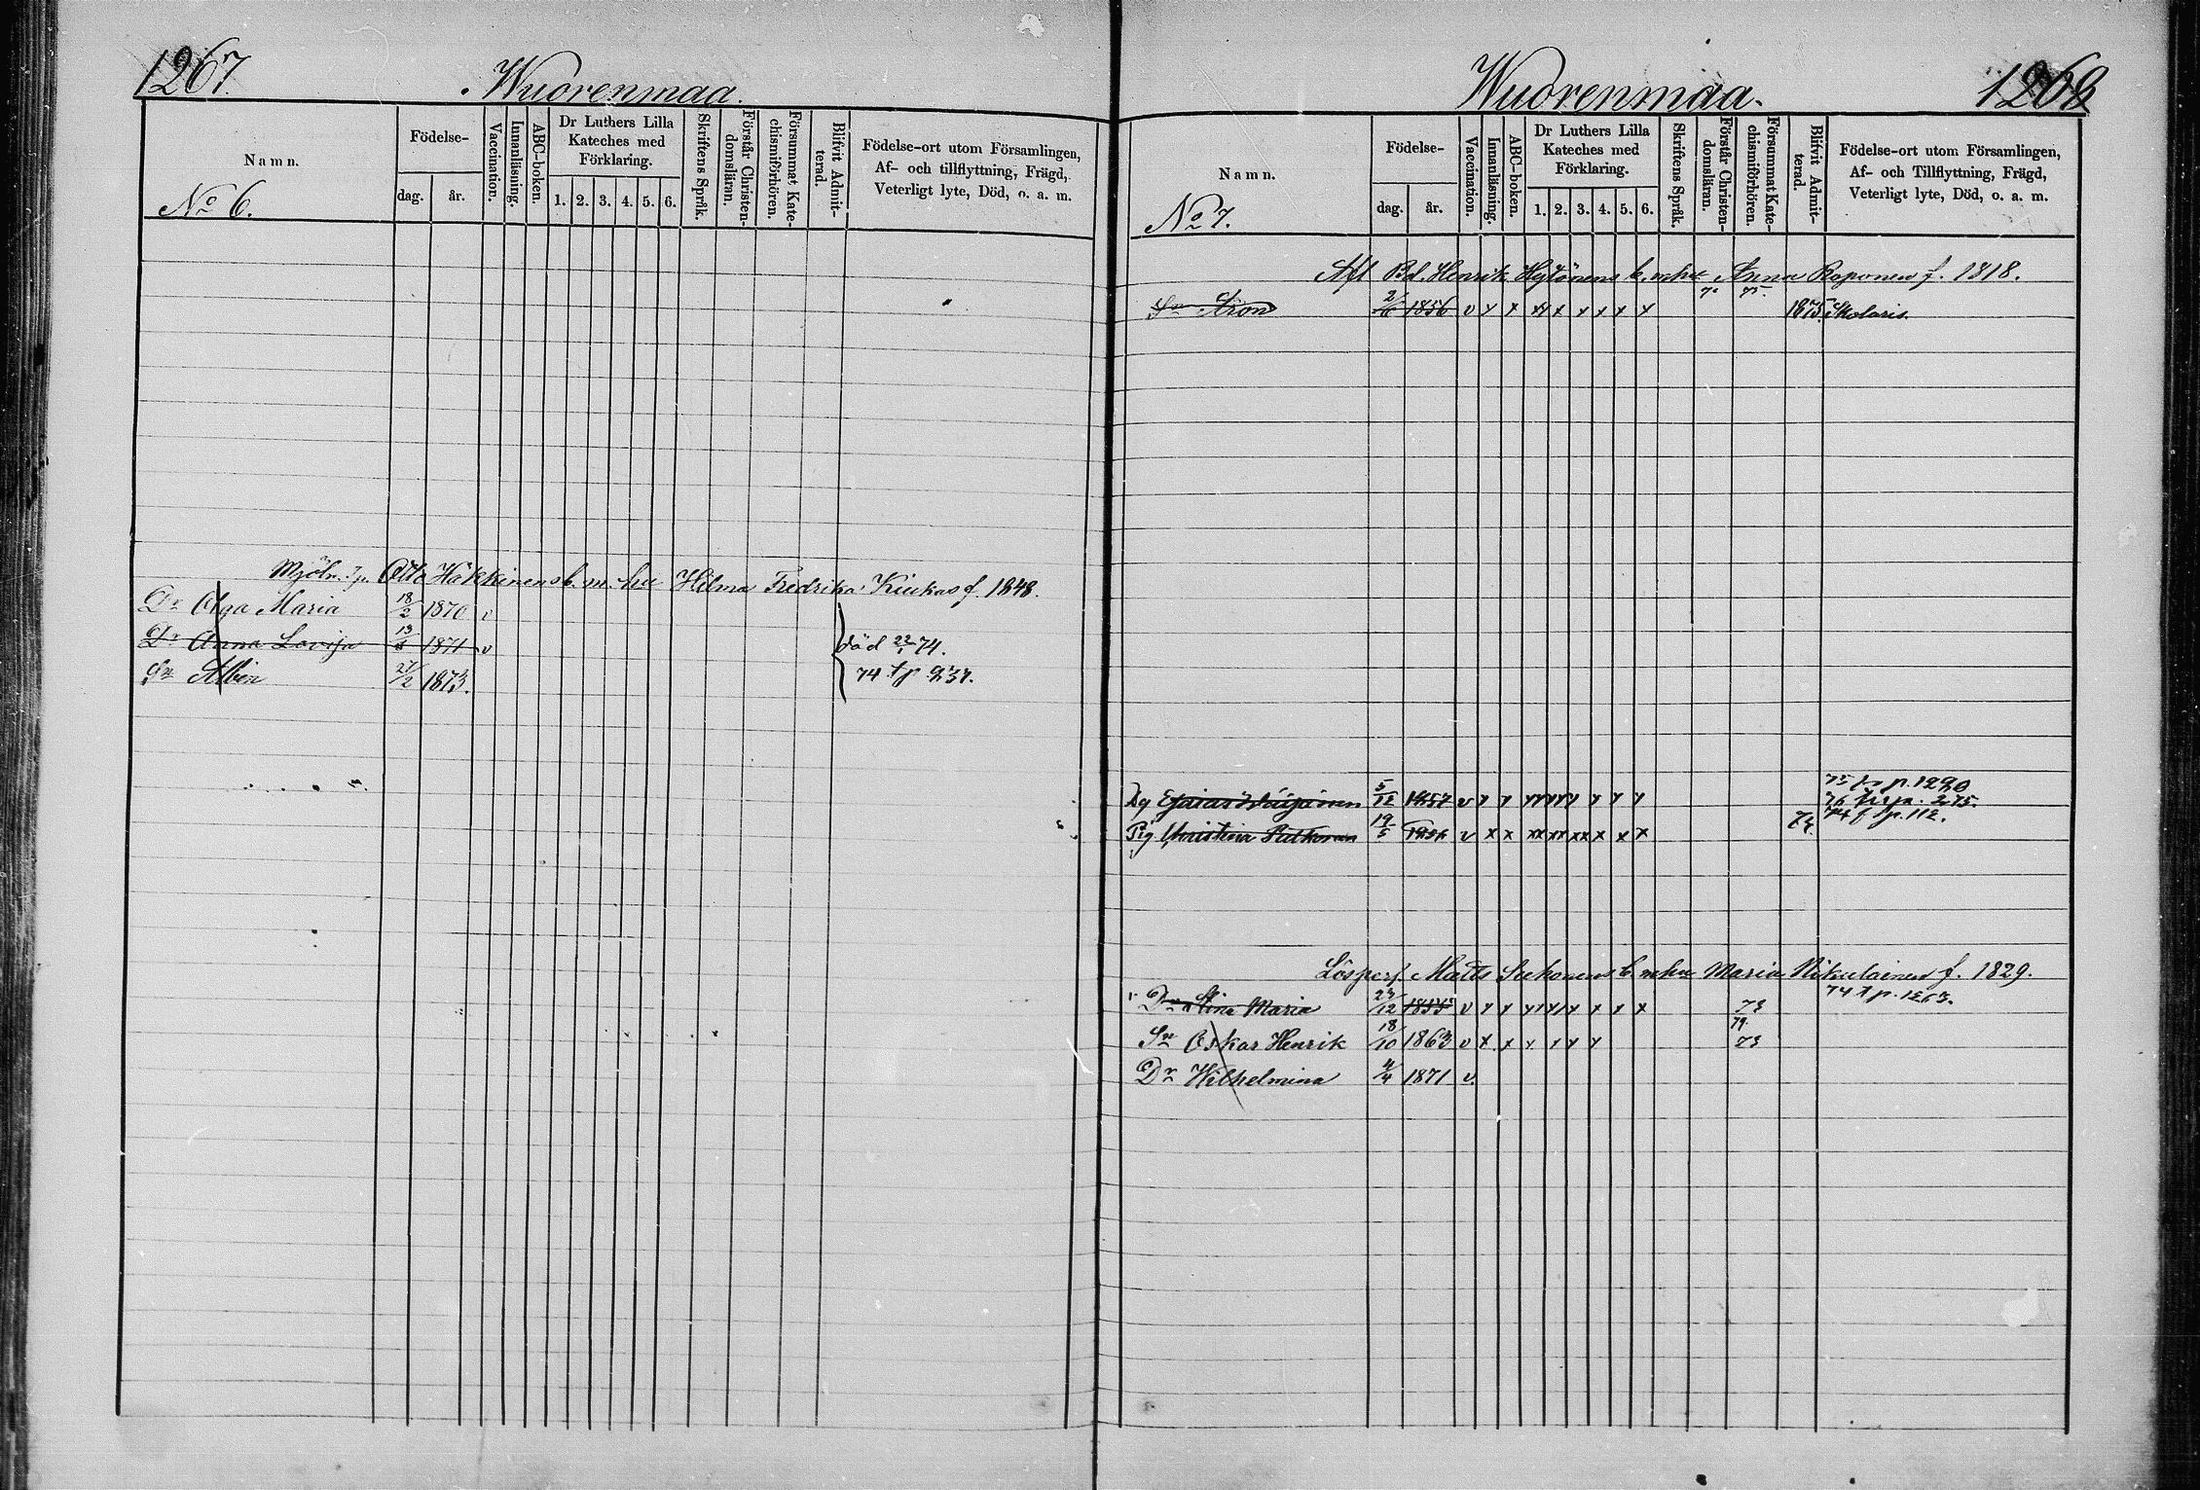 1267.
Wuorenmaa.
Namn.
No 6.
Födelse-
dag.
år.
Vaccination.
Innanläsning.
ABC-boken.
Dr Luthers Lilla
Kateches med
Förklaring.
1. 2. 3. 4. 5. 6.
Skriftens Språk.
Förstår Christen-
domsläran.
Försummat Kate-
chismiförhören.
Blifvit Admit-
terad.
Födelse-ort utom Församlingen,
Af- och tillflyttning, Frägd,
Veterligt lyte, Död, o. a. m.
Mjöln. Otto Häkkinens b. m. hu Hilma Fredrika Kiukas f. 1848.
Dr Olga Maria 18/2 1870 v
Dr Anna Lovisa 1871 v död 22/1 74.
Sn Albin 27/2 1873. 74 t p 937.
Wuorenmaa.
1268
Namn.
No 7.
Födelse-
dag.
år.
Vaccination.
Innanläsning.
ABC-boken.
Dr Luthers Lilla
Kateches med
Förklaring.
1. 2. 3. 4. 5. 6.
Skriftens Språk.
Förstår Christen-
domsläran.
Försummat Kate-
chismiförhören.
Blifvit Admit-
terad.
Födelse-ort utom Församlingen,
Af- och Tillflyttning, Frägd,
Veterligt lyte, Död, o. a. m.
Afl Bd. Henrik Hytönens b. m hu Anna Roponen f. 1818.
75.
Sn Aron 1856 v x x xx x x x x x 1875. Skolaris.
75 p. 1290
Dg Esaias 5/12 1857 v x x x x x x x x x 76 p. 275.
74 f p. 112.
Pig Christina 19/5 v x x xx xx xx x x x 74.
Lösperf Matts b. m hu Maria Nikulainen f. 1829.
74 t p. 1263.
Dr Stina Maria 23/12 1855 v x x x x x x x x x 73
74.
Sn Oskar Henrik 18/10 1863 v x x x x x x 73
Dr Wilhelmina 4/4 1871 v.